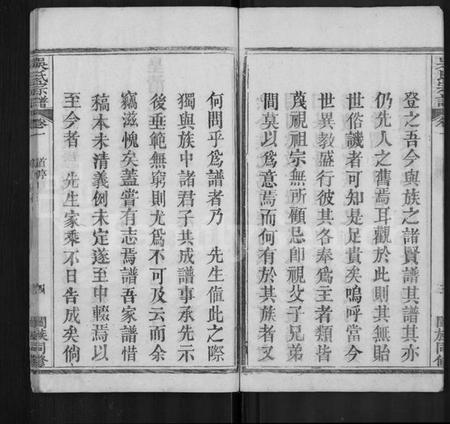 登之吾今與族之諸賢譜其譜其亦
仍先人之舊焉耳觀於此則其無貽
世俗譏者可知是足貴矣嗚呼當今
世異教盛行彼其各奉為王者類皆
蔑視祖宗無所顧忌即視父子兄弟
間莫以為意焉而何有於其族者又
何問乎爲譜者乃　先生值此之際
獨與族中諸君子共成譜事承先示
後垂範無窮則尤爲不可及云而余
竊滋愧矣蓋嘗有志焉譜吾家譜惜
稿本未清義例未定遂至中輟焉以
至今者　先生家乘不日告成矣倘
吳氏宗譜
卷一
四
闔族同修